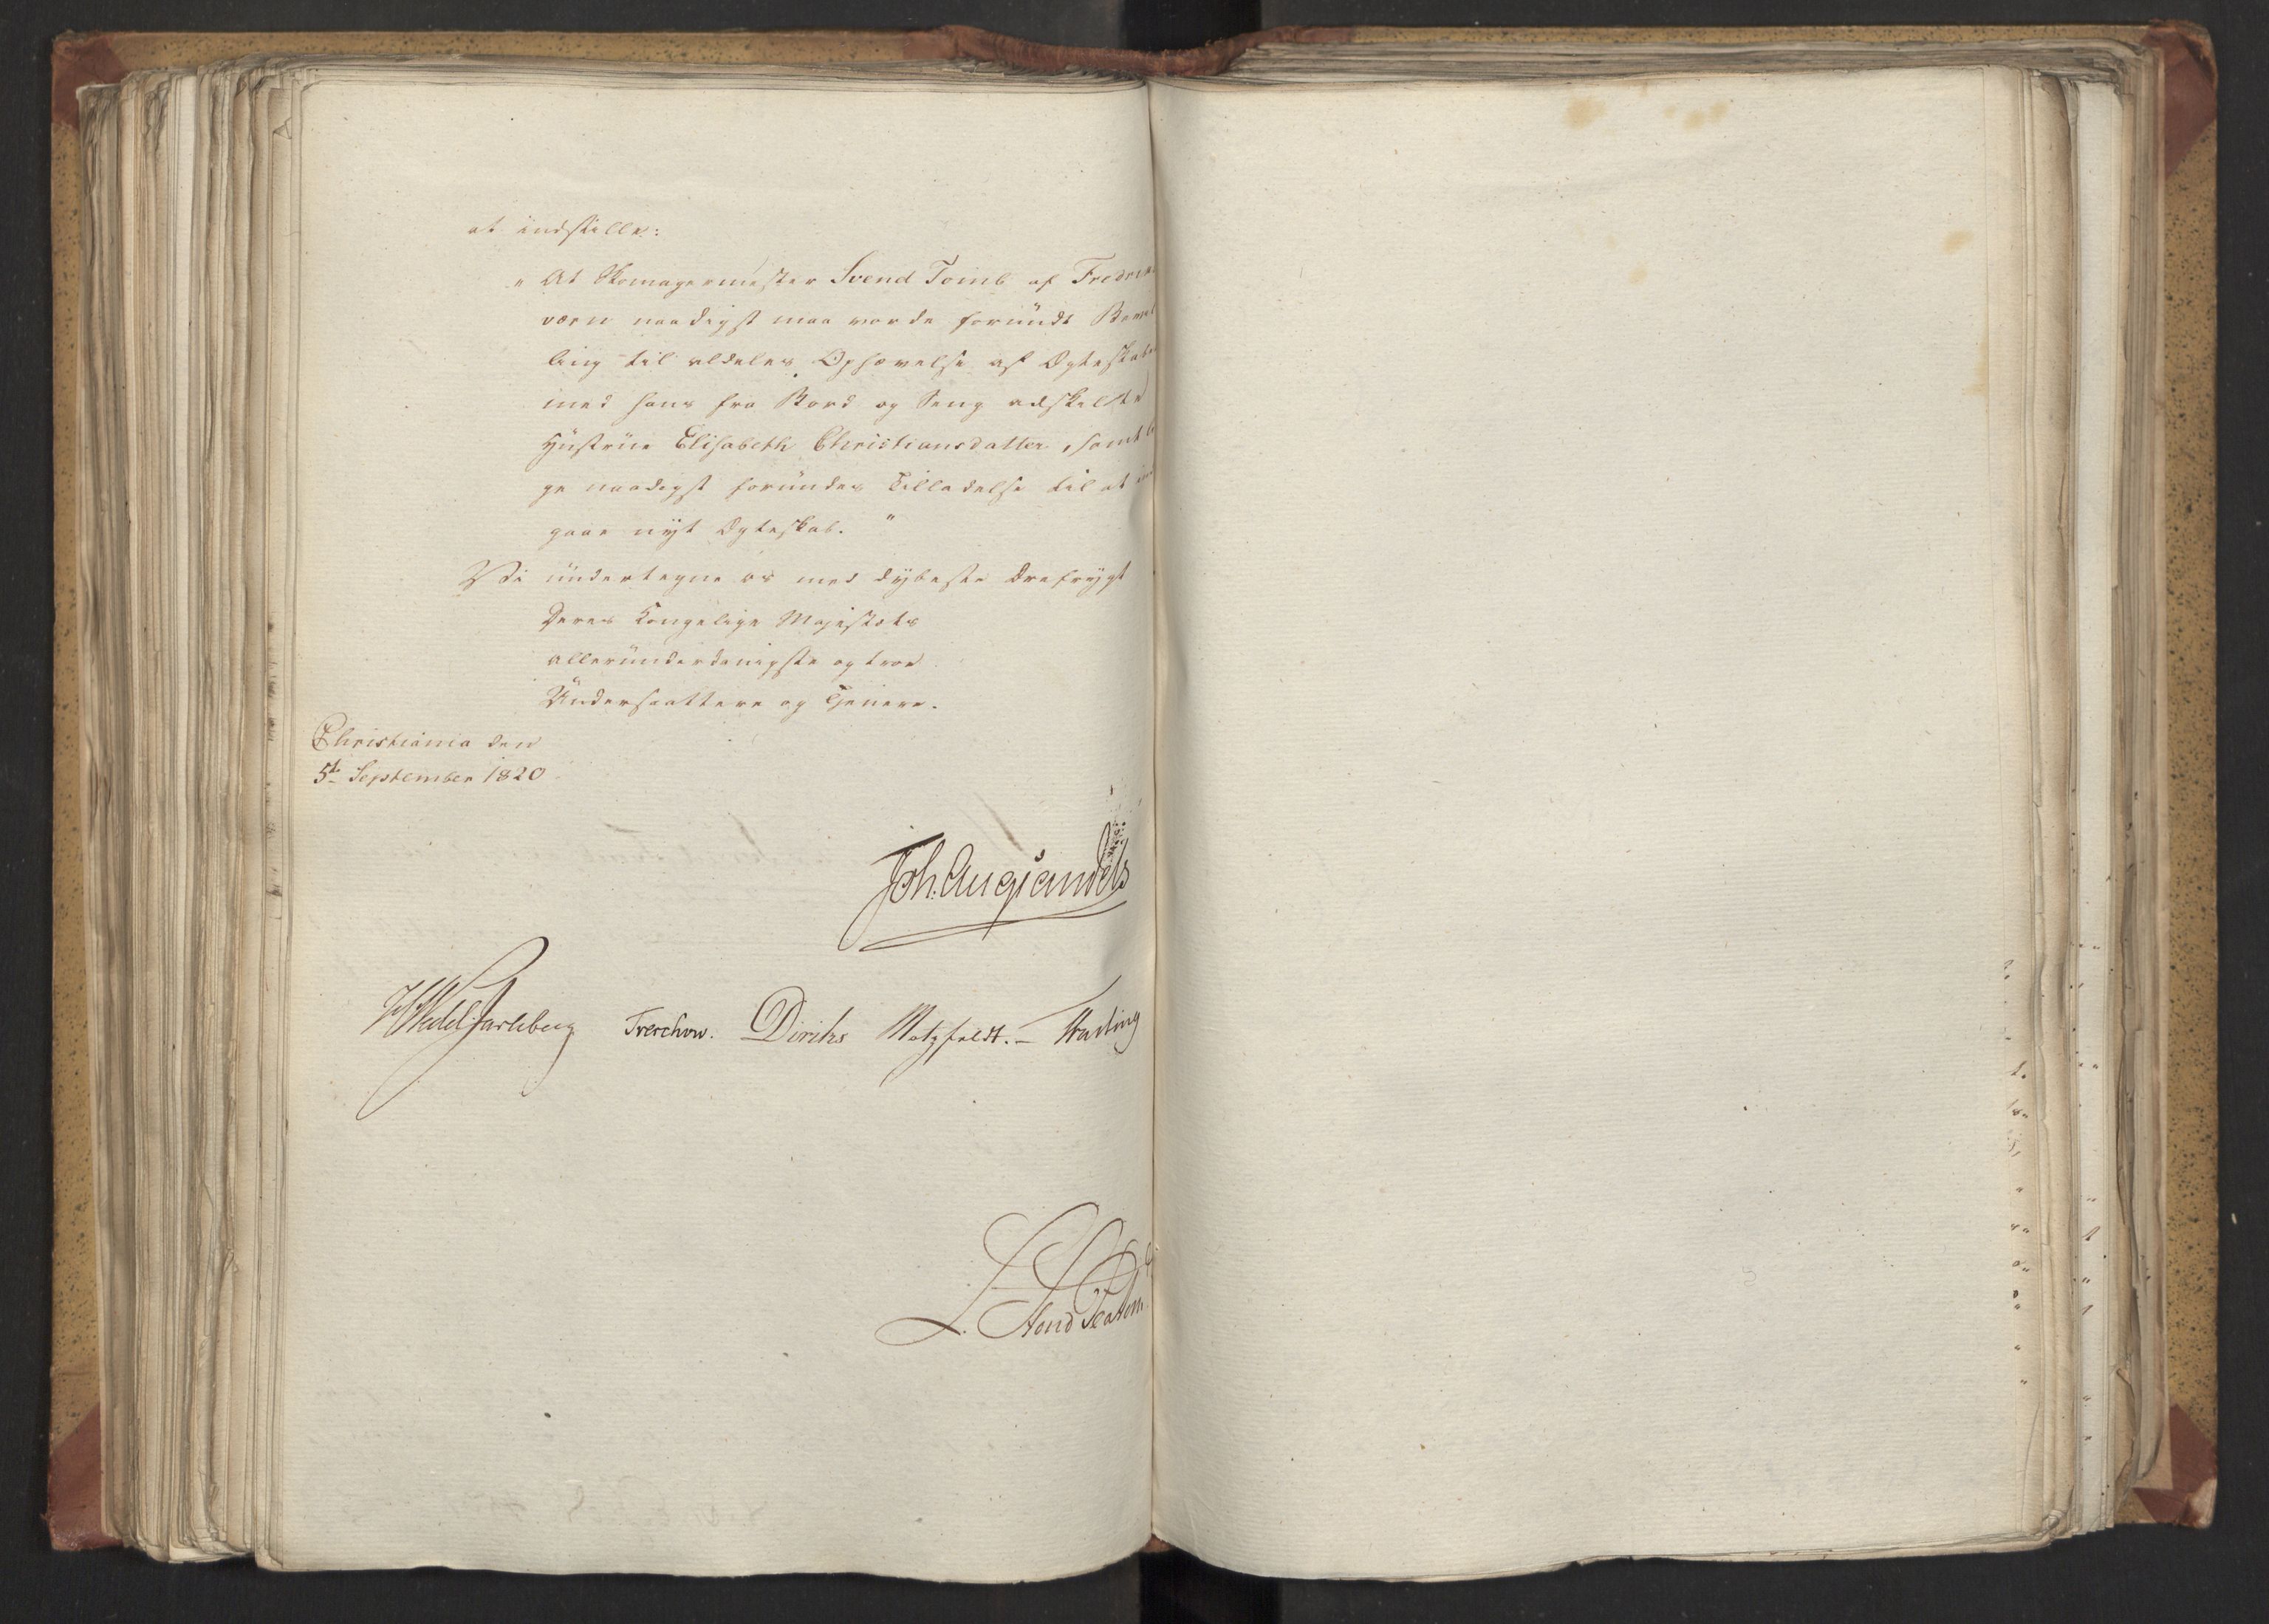 at indstille:
"At Skomagermester Svend Tomb af Fredriks
værn naadigst maa vorde forundt Bevil
ling til aldeles Ophævelse af Ægteskabet
med hans fra Bord og Seng adskilte
Hustrue Elisabeth Christiansdatter, samt
ge naadigst forundes Tilladelse til at ind
gaae nyt Ægteskab."
Vi undertegne os med dybeste Ærefrygt
Deres Kongelige Majestæts
allerunderdanigste og troe
Undersaattere og Tjenere.
Christiania den
5te September 1820
Joh. Aug Sandels
HWedel Jarlsberg Treschow. Diriks Motzfeldt. - Fasting
L.